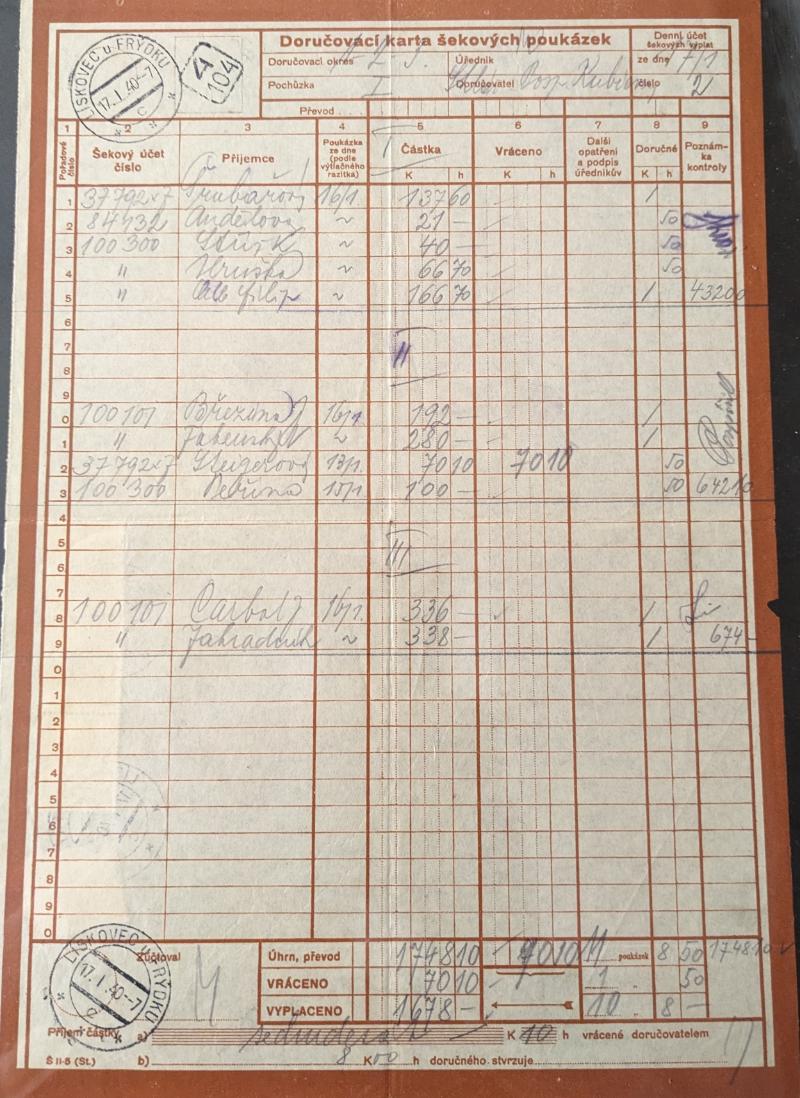 LÍSKOVEC u FRÝDKU
17.I.40-7
c
A
104
Doručovací karta šekových poukázek
Denní účet šekových výplat
Doručovací okres 1-2-3. Úředník
ze dne 17/1
Pochůzka I Doručovatel
číslo 2
Převod
1 2 3 4 5 6 7 8 9
Pořadové číslo Šekový účet číslo Příjemce Poukázka ze dne (podle výtlačného razítka) Částka K h Vráceno K h Další opatření a podpis úředníkův Doručné K h Poznámka kontroly
I
1 37792 16/1 137 60 1
2 84932 Andělová " 21 — 50
3 100300 " 40 — 50
4 " Hruška " 66 70 50
5 " Filip " 166 70 1 432 00
6
7 II
8
9
0 100101 Březina 16/1 192 — 1
1 " " 280 — 1
2 37792 Steigerová 13/1 70 10 70 10 50
3 100300 15/1. 100 — 50 642 10
4
5 III
6
7
8 100101 16/1. 336 — 1
9 " Zahradník " 338 — 1 674 —
0
1
2
3
4
5
6
7
8
9
0
LÍSKOVEC u FRÝDKU
17.I.40-7
c
Zúčtoval
Úhrn, převod 1748 10 70 10 11 poukázek 8 50 1748 10
VRÁCENO 70 10 1 " 50
VYPLACENO 1678 — 10 " 8 —
Příjem částky a) sedmdesát K 10 h vrácené doručovatelem
Š II-5 (St.) b) 8 K 00 h doručného stvrzuje